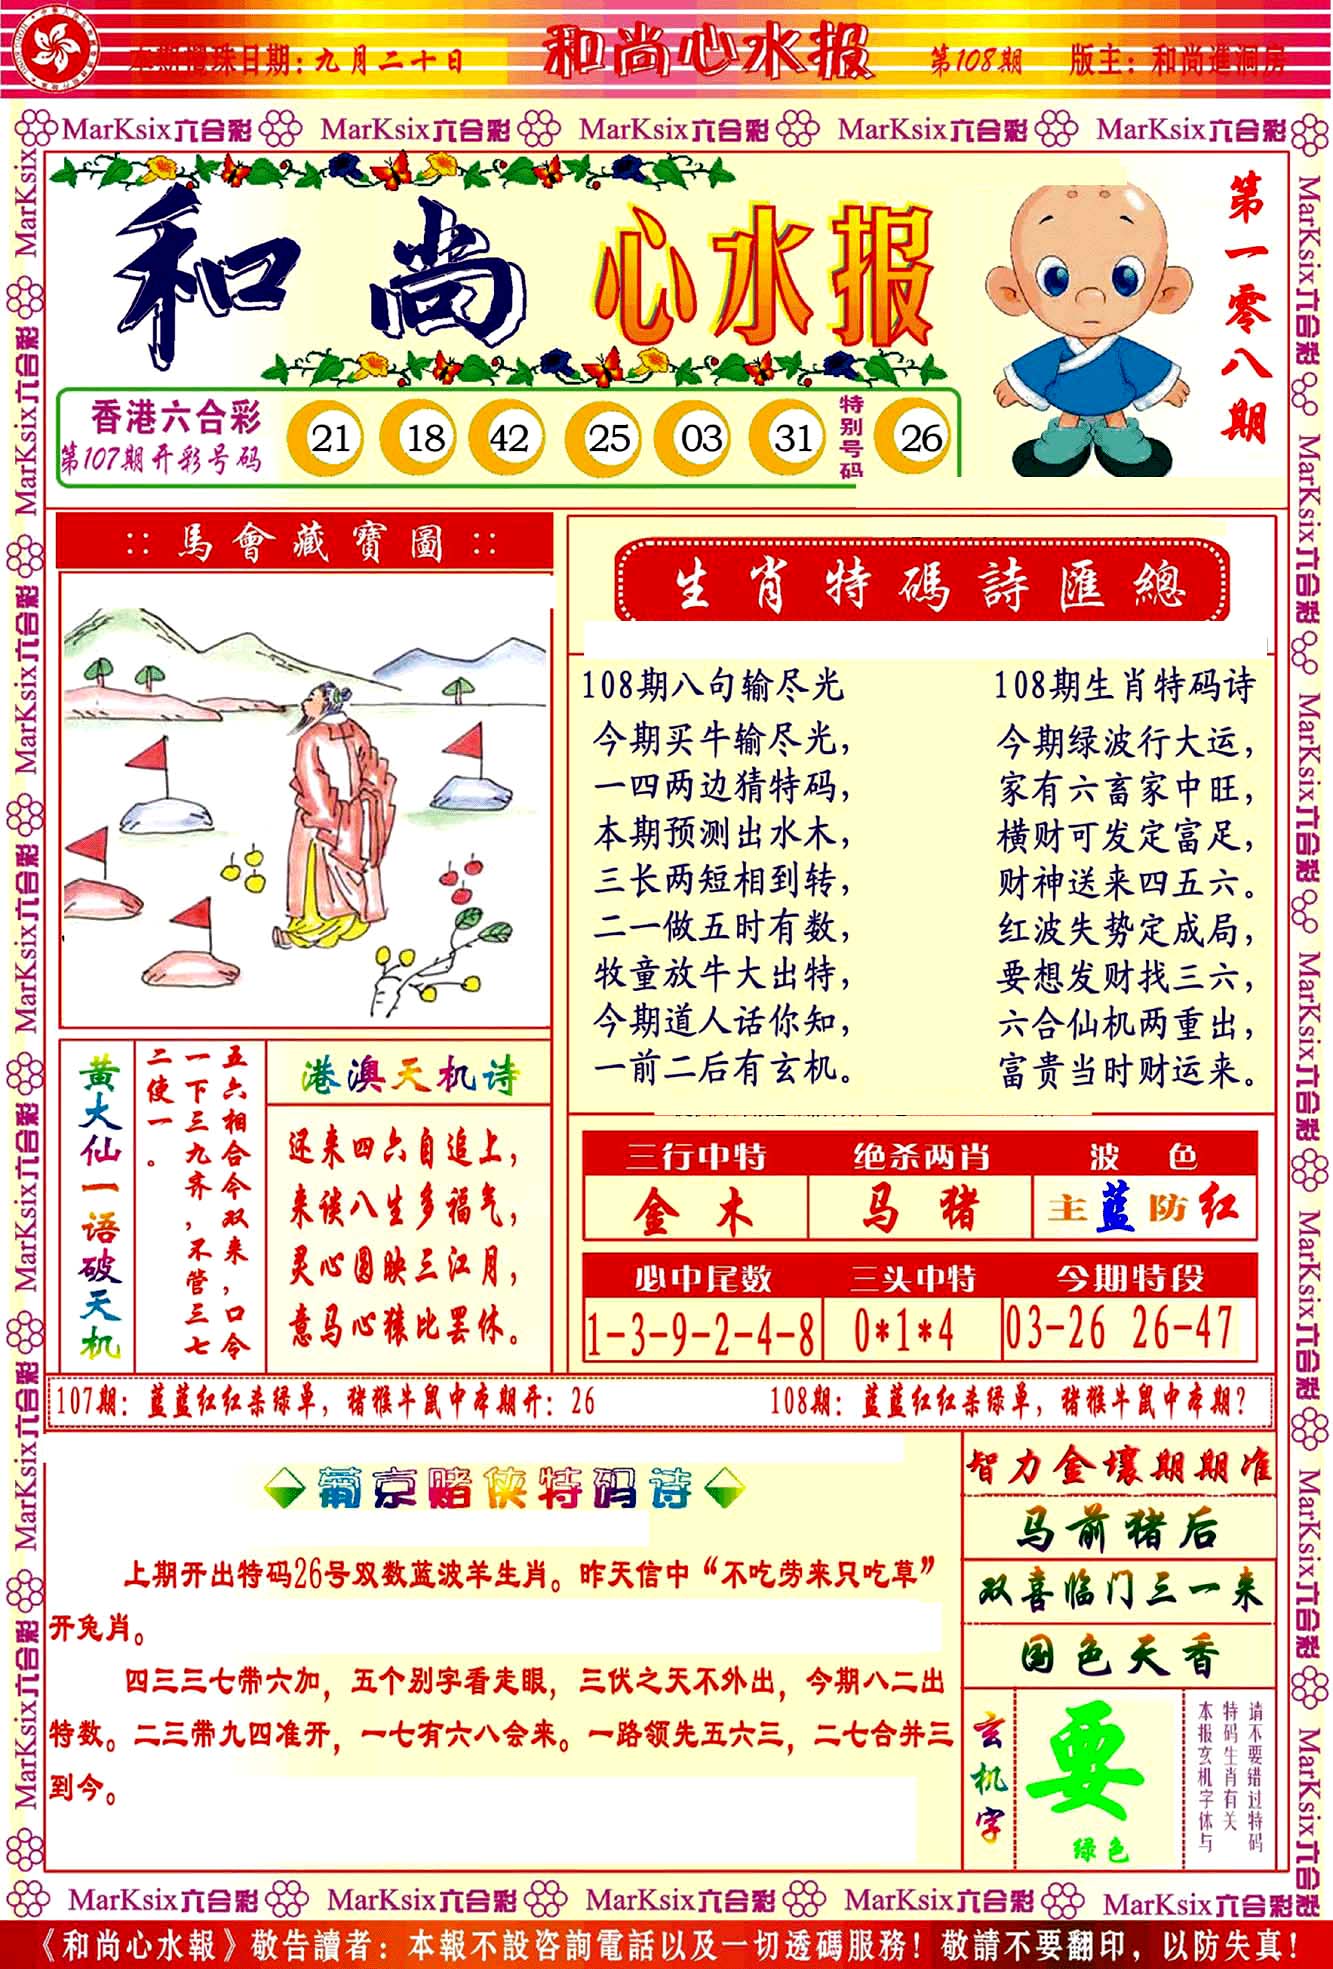 本期攪珠日期:九月二十日
和尚心水报
第108期
版主:和尚進洞房
MarKsix六合彩 MarKsix六合彩 MarKsix六合彩 MarKsix六合彩 MarKsix六合彩
和尚心水报
第一零八期
香港六合彩
第107期开彩号码
21 18 42 25 03 31
特别号码
26
::馬會藏寶圖::
生肖特碼詩匯總
108期八句输尽光
今期买牛输尽光,
一四两边猜特码,
本期预测出水木,
三长两短相到转,
二一做五时有数,
牧童放牛大出特,
今期道人话你知,
一前二后有玄机。
108期生肖特码诗
今期绿波行大运,
家有六畜家中旺,
横财可发定富足,
财神送来四五六。
红波失势定成局,
要想发财找三六,
六合仙机两重出,
富贵当时财运来。
黄大仙一语破天机
五六相合今双来,口令
一下三九齐,不管三七
二使一。
港澳天机诗
还来四六自追上,
来谈八生多福气,
灵心圆映三江月,
意马心猿比罢休。
三行中特 绝杀两肖 波色
金木 马猪 主蓝防红
必中尾数 三头中特 今期特段
1-3-9-2-4-8 0*1*4 03-26 26-47
107期: 蓝蓝红红杀绿单, 猪猴牛鼠中本期开: 26
108期: 蓝蓝红红杀绿单, 猪猴牛鼠中本期?
葡京赌侠特码诗
上期开出特码26号双数蓝波羊生肖。昨天信中“不吃劳来只吃草”
开兔肖。
四三三七带六加, 五个别字看走眼, 三伏之天不外出, 今期八二出
特数。二三带九四准开, 一七有六八会来。一路领先五六三, 二七合并三
到今。
智力金壤期期准
马前猪后
双喜临门三一来
国色天香
玄机字
要
绿色
请不要错过特码
特码生肖有关
本报玄机字体与
MarKsix六合彩 MarKsix六合彩 MarKsix六合彩 MarKsix六合彩 MarKsix六合彩
《和尚心水報》敬告讀者: 本報不設咨詢電話以及一切透碼服務! 敬請不要翻印, 以防失真!